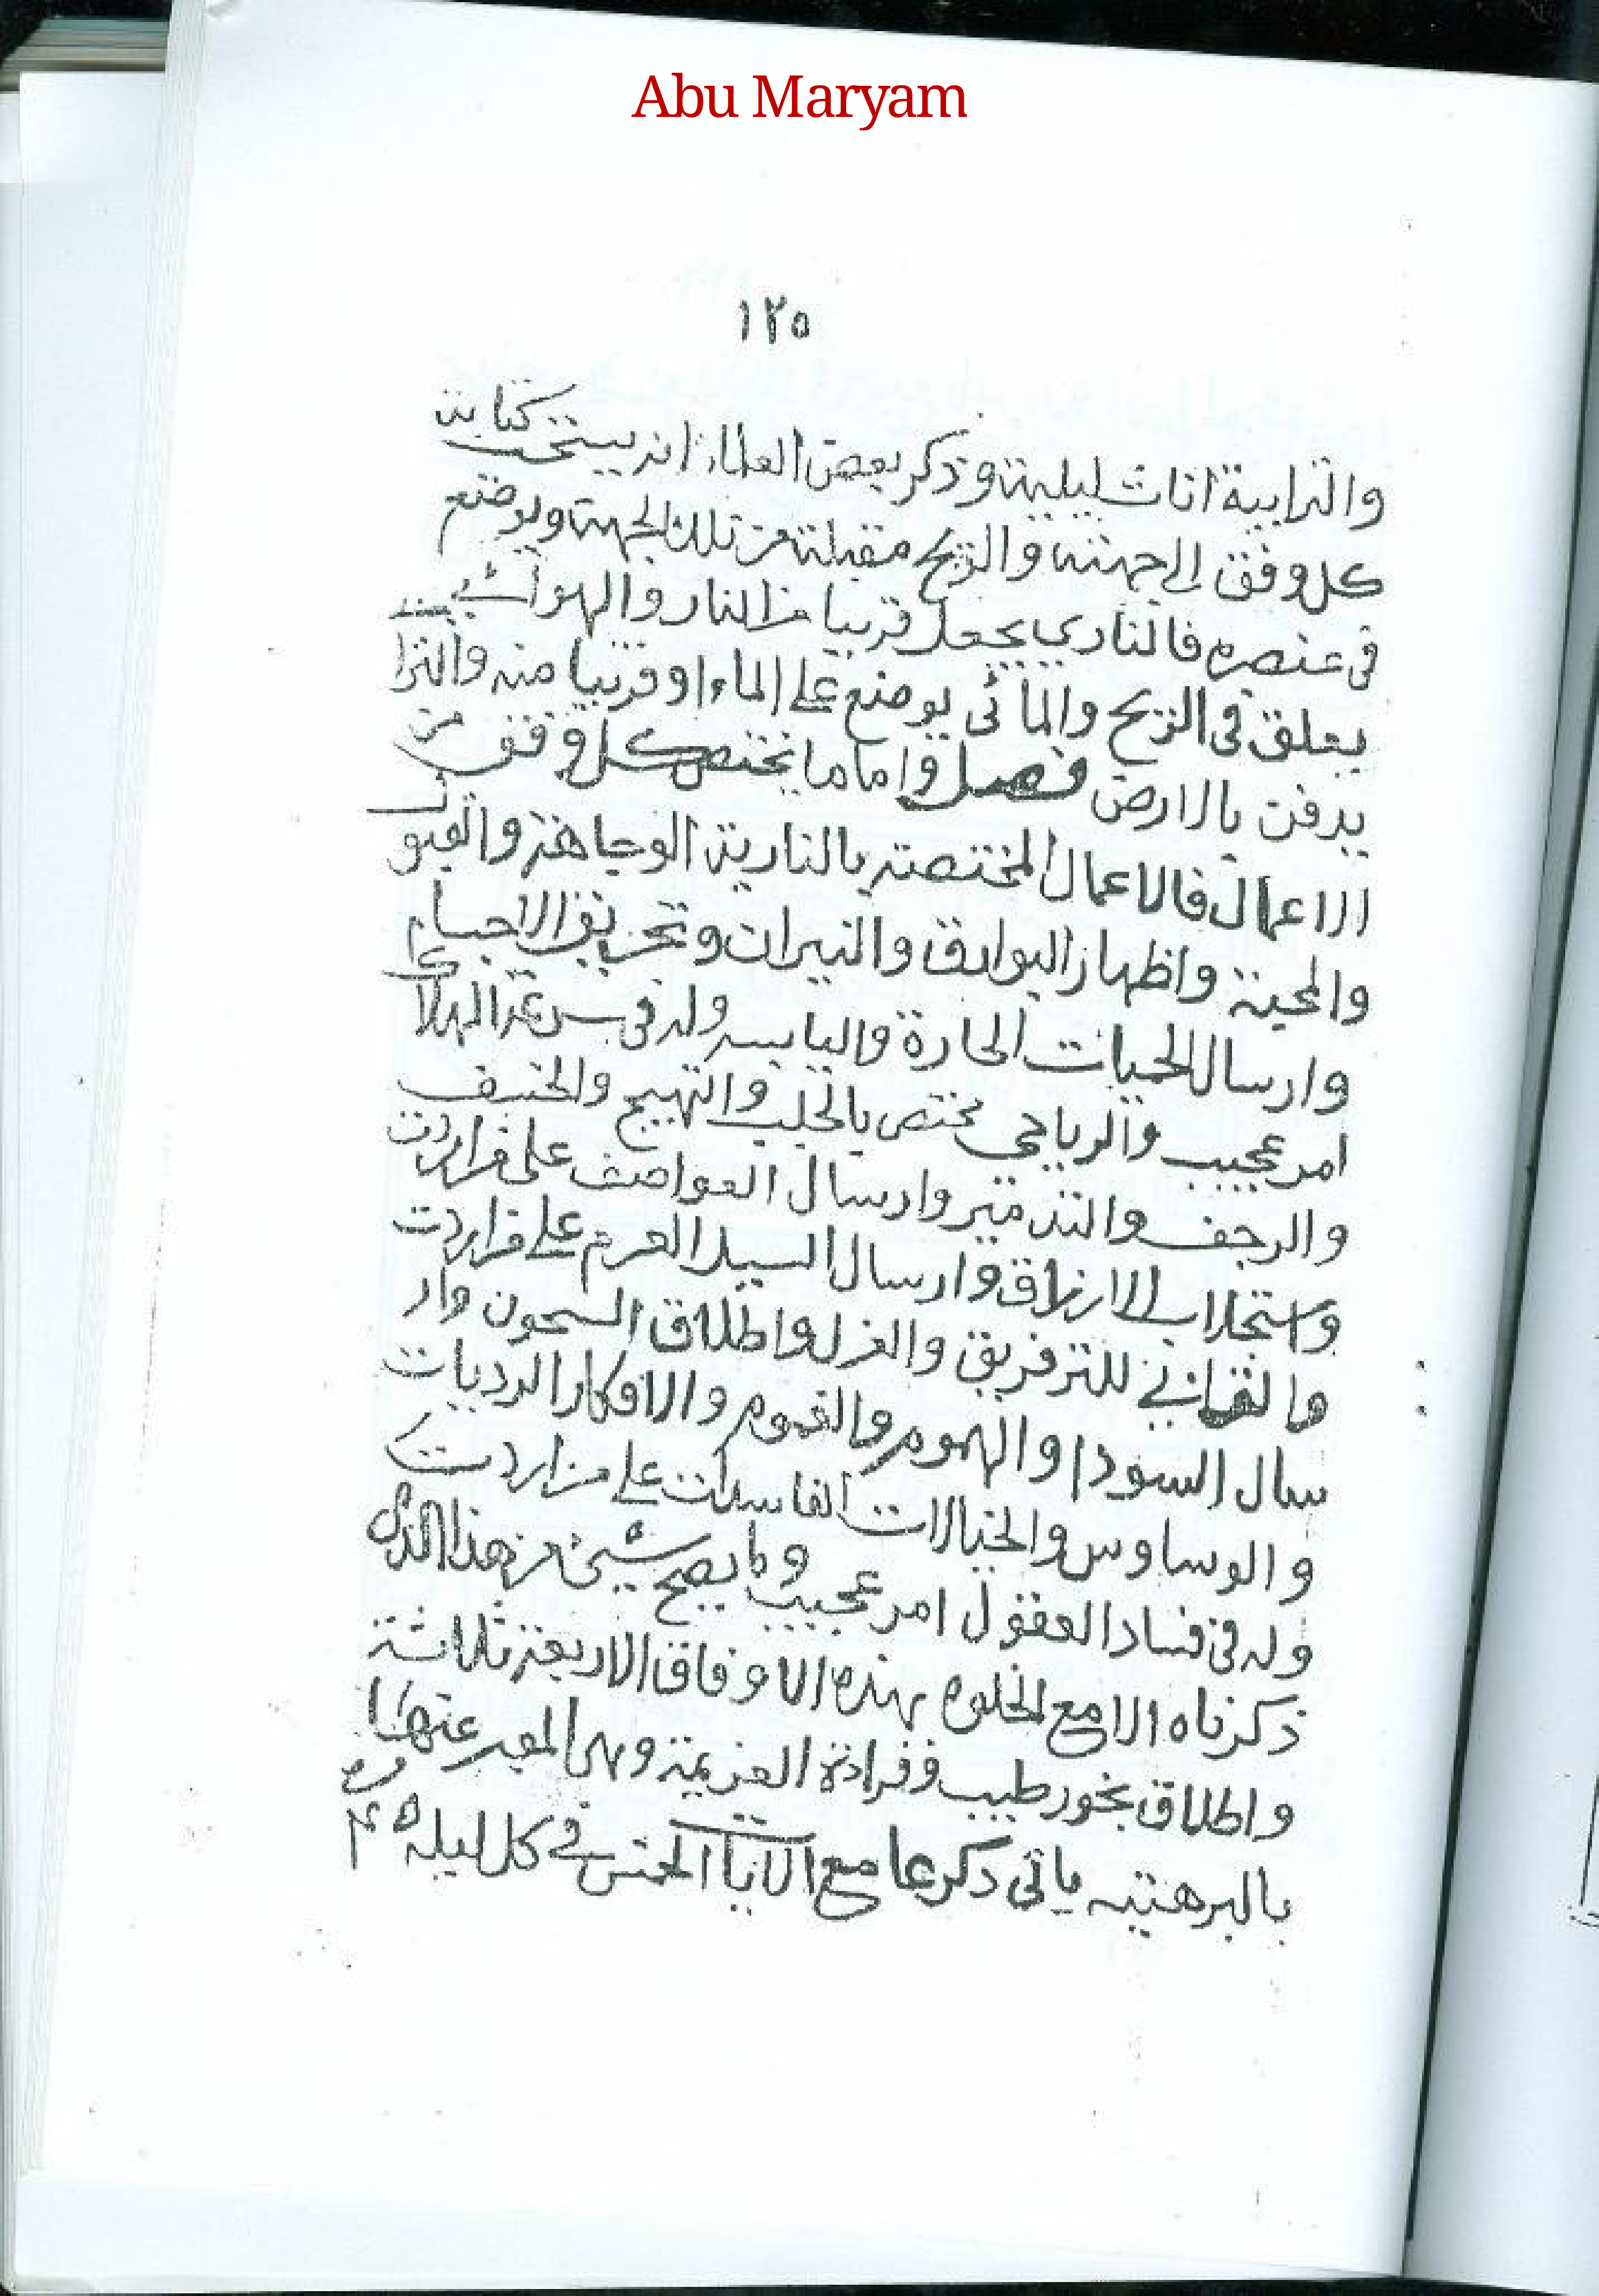 Abu Maryam
١٢٥
والترابية اناث ليلية وذكر بعض العلماء انه يستحب كتابة
كل وفق الى جهته والريح مقبلة من تلك الجهة ويوضع
فى عنصره فالناري يجعل قريبا من النار والهوائي
يعلق فى الريح والمائى يوضع على الماء او قريبا منه والترا
يدفن بالارض فصل واما ما يختص كل وفق من
الاعمال فالاعمال المختصة بالنارية الوجاهة والقبول
والمحبة واظهار البوارق والنيران وتحريق الاجسام
وارسال الحميات الحارة واليابسه وله فى سرعة الهلاك
امر عجيب والرياحي مختص بالجلب والتهييج والخسف
والرجف والتدمير وارسال العواصف على من اردت
واستجلاب الارزاق وارسال السيل العرم على من اردت
والترابي للتفريق والعزل واطلاق السجون وار
سال السودا والهموم والغموم والافكار الرديات
والوساوس والخيالات الفاسدات على من اردت
وله فى فساد العقول امر عجيب ولا يصح شيئ من هذا الذى
ذكرناه الا مع الخلوه بهذه الاوفاق الاربعة ثلاثة
واطلاق بخور طيب وقراءة العزيمة وهى المعبر عنها
بالبرهتيه ياتى ذكرها مع الايات الخمس فى كل ليله ٤٥ مره